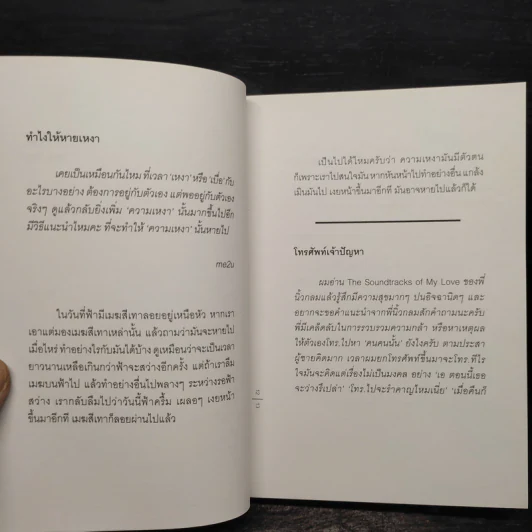 ทำไงให้หายเหงา
เคยเป็นเหมือนกันไหม ที่เวลา 'เหงา' หรือ 'เบื่อ' กับ
อะไรบางอย่าง ต้องการอยู่กับตัวเอง แต่พออยู่กับตัวเอง
จริงๆ ดูแล้วกลับยิ่งเพิ่ม 'ความเหงา' นั้นมากขึ้นไปอีก
มีวิธีแนะนำไหมคะ ที่จะทำให้ 'ความเหงา' นั้นหายไป
me2u
ในวันที่ฟ้ามีเมฆสีเทาลอยอยู่เหนือหัว หากเรา
เอาแต่มองเมฆสีเทาเหล่านั้น แล้วถามว่ามันจะหายไป
เมื่อไหร่ ทำอย่างไรกับมันได้บ้าง ดูเหมือนว่าจะเป็นเวลา
ยาวนานเหลือเกินกว่าฟ้าจะสว่างอีกครั้ง แต่ถ้าเราลืม
เมฆบนฟ้าไป แล้วทำอย่างอื่นไปพลางๆ ระหว่างรอฟ้า
สว่าง เรากลับลืมไปว่าวันนี้ฟ้าครึ้ม เผลอๆ เงยหน้า
ขึ้นมาอีกที เมฆสีเทาก็ลอยผ่านไปแล้ว
เป็นไปได้ไหมครับว่า ความเหงามันมีตัวตน
ก็เพราะเราไปสนใจมัน หากหันหน้าไปทำอย่างอื่น แกล้ง
เมินมันไป เงยหน้าขึ้นมาอีกที มันอาจหายไปแล้วก็ได้
โทรศัพท์เจ้าปัญหา
ผมอ่าน The Soundtracks of My Love ของพี่
นิ้วกลมแล้วรู้สึกมีความสุขมากๆ ปนอิจฉานิดๆ และ
อยากจะขอคำแนะนำจากพี่นิ้วกลมสักคำถามนะครับ
พี่มีเคล็ดลับในการรวบรวมความกล้า หรือหาเหตุผล
ให้ตัวเองโทร.ไปหา 'คนคนนั้น' ยังไงครับ ตามประสา
ผู้ชายคิดมาก เวลาผมยกโทรศัพท์ขึ้นมาจะโทร ทีไร
ใจมันจะคิดแต่เรื่องไม่เป็นมงคล อย่าง 'เอ ตอนนี้เธอ
จะว่างรึเปล่า' 'โทร.ไปจะรำคาญไหมเนี่ย' 'เมื่อคืนก็